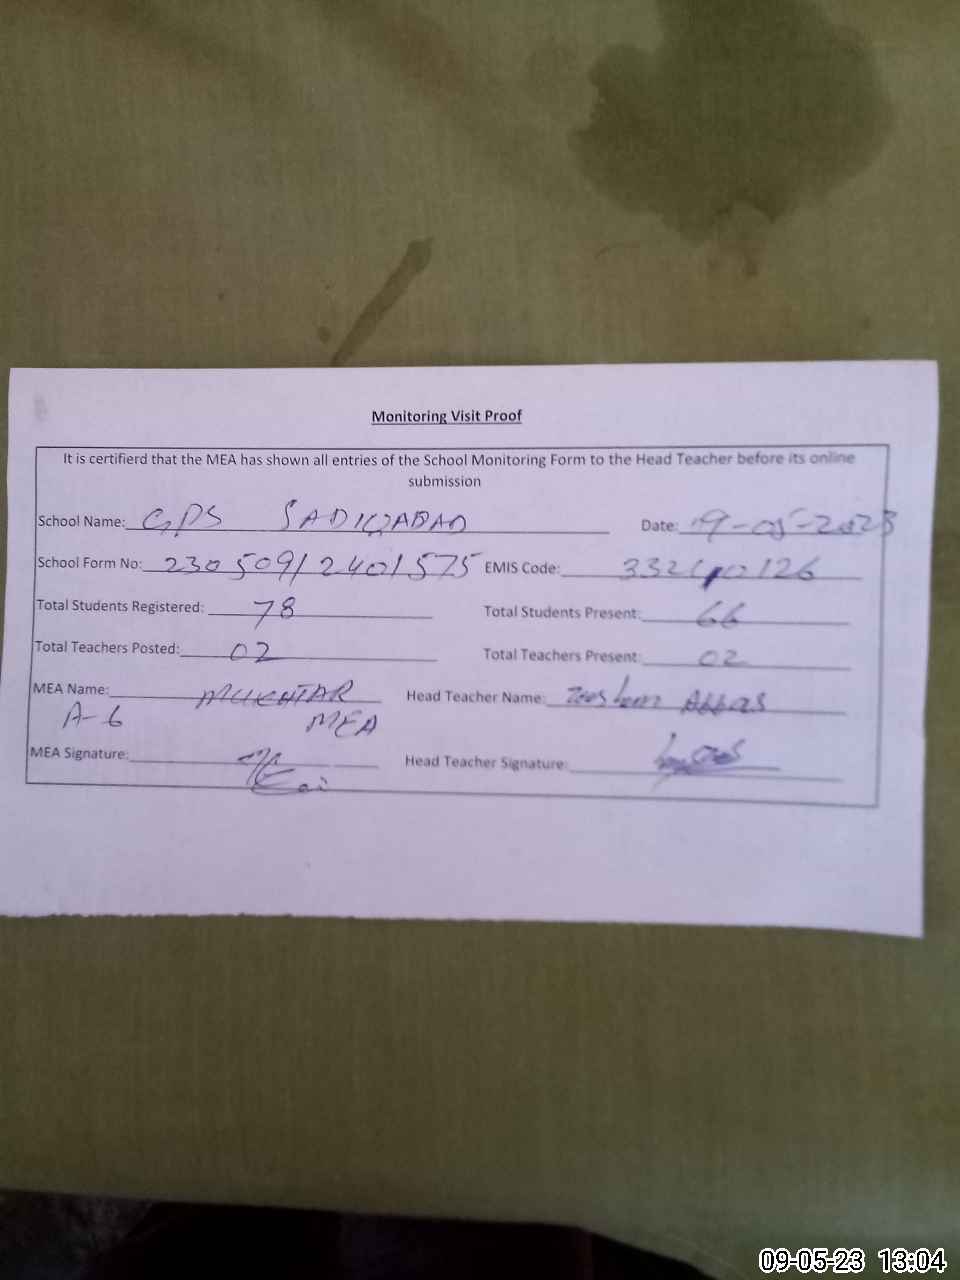 Monitoring Visit Proof
It is certifierd that the MEA has shown all entries of the School Monitoring Form to the Head Teacher before its online
submission
School Name: GPS SADIQABAD Date: 09-05-2023
School Form No: 230509/2401575 EMIS Code:
Total Students Registered: 78 Total Students Present: 66
Total Teachers Posted: 02 Total Teachers Present: 02
MEA Name: MUKHTAR Head Teacher Name: Abbas
A-6 MEA
MEA Signature: Head Teacher Signature:
09-05-23 13:04